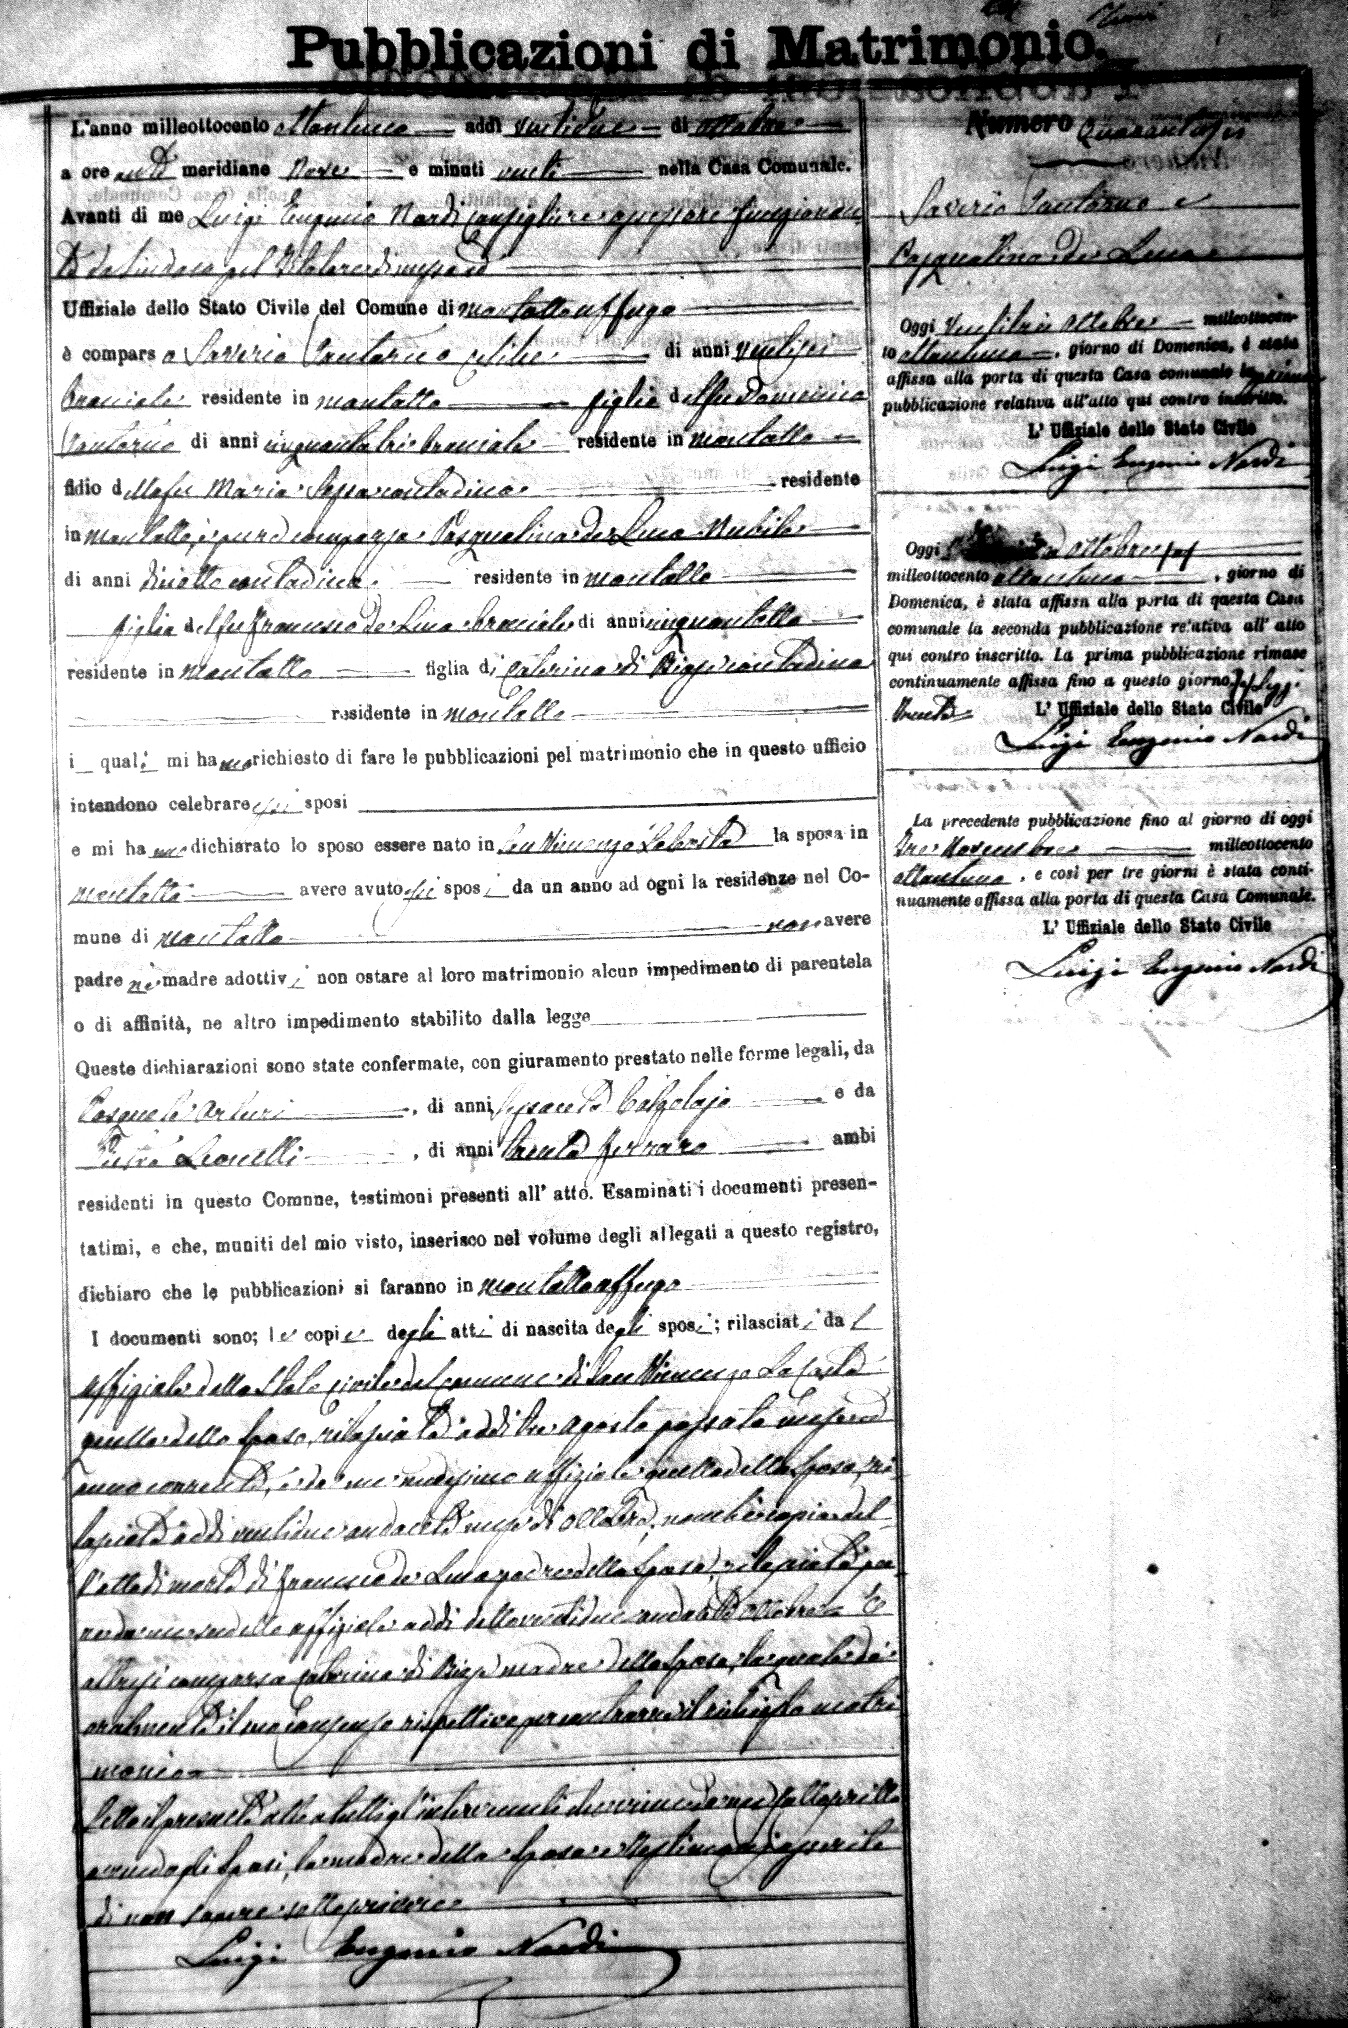 Pubblicazioni di Matrimonio.
L'anno milleottocento ottantuno addì ventidue di ottobre
a ore anti meridiane nove e minuti venti nella Casa Comunale.
Avanti di me Luigi Eugenio Nardi Consigliere assessore funzionan
te da Sindaco pel titolare
Uffiziale dello Stato Civile del Comune di montaltouffugo
è compars o Saverio Santoruo celibe di anni ventisei
bracciale residente in montalto figlio del fu Domenico
Santoruo di anni cinquantatrè bracciale residente in montalto
fidio della fu Maria contadina residente
in montalto, è pure comparsa Pasqualina de Luca Nubile
di anni diciotto contadina residente in montalto
figlia del fu Francesco de Luca bracciale di anni cinquantotto
residente in montalto figlia di Caterina di Biase contadina
residente in montalto
i quali mi hanno richiesto di fare le pubblicazioni pel matrimonio che in questo ufficio
intendono celebrare essi sposi
e mi hanno dichiarato lo sposo essere nato in San Vincenzo La Costa la sposa in
montalto avere avuto essi sposi da un anno ad ogni la residenze nel Co-
mune di montalto non avere
padre nè madre adottivi non ostare al loro matrimonio alcun impedimento di parentela
o di affinità, ne altro impedimento stabilito dalla legge
Queste dichiarazioni sono state confermate, con giuramento prestato nelle forme legali, da
Pasquale Arturi, di anni sessanta Calzolajo e da
Pietro Leonelli, di anni trenta ferraro ambi
residenti in questo Comune, testimoni presenti all' atto. Esaminati i documenti presen-
tatimi, e che, muniti del mio visto, inserisco nel volume degli allegati a questo registro,
dichiaro che le pubblicazioni si faranno in montaltouffugo
I documenti sono; le copie degli atti di nascita degli sposi; rilasciati da l
uffiziale dello Stato Civile del Comune di San Vincenzo La Costa
quello dello Sposo, rilasciata addì tre agosto passato mese
anno corrente, e da me medesimo uffiziale quello della Sposa, ri
lasciata addì ventidue andante mese di ottobre, nonchè copia del
l'atto di morte di Francesco de Luca padre della Sposa, rilasciata pu
re da me suddetto uffiziale addì detto ventidue andante ottobre. È
altresì comparsa Caterina di Biase madre della Sposa, la quale dà
oralmente il suo consenso rispettivo per contrarre il matri
monio
Letto il presente atto a tutti gl'intervenuti si è da me sottoscritto
avendo gli Sposi, la madre della Sposa e testimoni asserito
di non sapere sottoscrivere
Luigi Eugenio Nardi
Numero Quarantasei
Saverio Santoruo e
Pasqualina de Luca
Oggi ventitrè ottobre milleottocen-
to ottantuno, giorno di Domenica, è stata
affissa alla porta di questa Casa comunale la prima
pubblicazione relativa all'atto qui contro inscritto.
L' Uffiziale dello Stato Civile
Luigi Eugenio Nardi
Oggi ottobre
milleottocento ottantuno, giorno di
Domenica, è stata affissa alla porta di questa Casa
comunale la seconda pubblicazione relativa all' atto
qui contro inscritto. La prima pubblicazione rimase
continuamente affissa fino a questo giorno Leggi
trenta L' Uffiziale dello Stato Civile
Luigi Eugenio Nardi
La precedente pubblicazione fino al giorno di oggi
tre Novembre milleottocento
ottantuno, e così per tre giorni è stata conti-
nuamente affissa alla porta di questa Casa Comunale.
L' Uffiziale dello Stato Civile
Luigi Eugenio Nardi